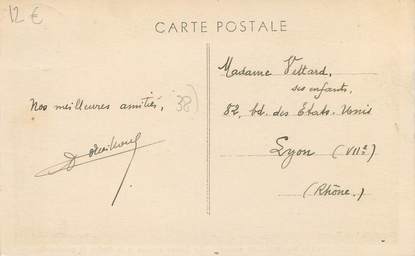 12 €
CARTE POSTALE
Nos meilleures amitiés,
38)
Madame Vettard,
ses enfants,
82, bd. des Etats-Unis
Lyon (VIIe)
(Rhône.)